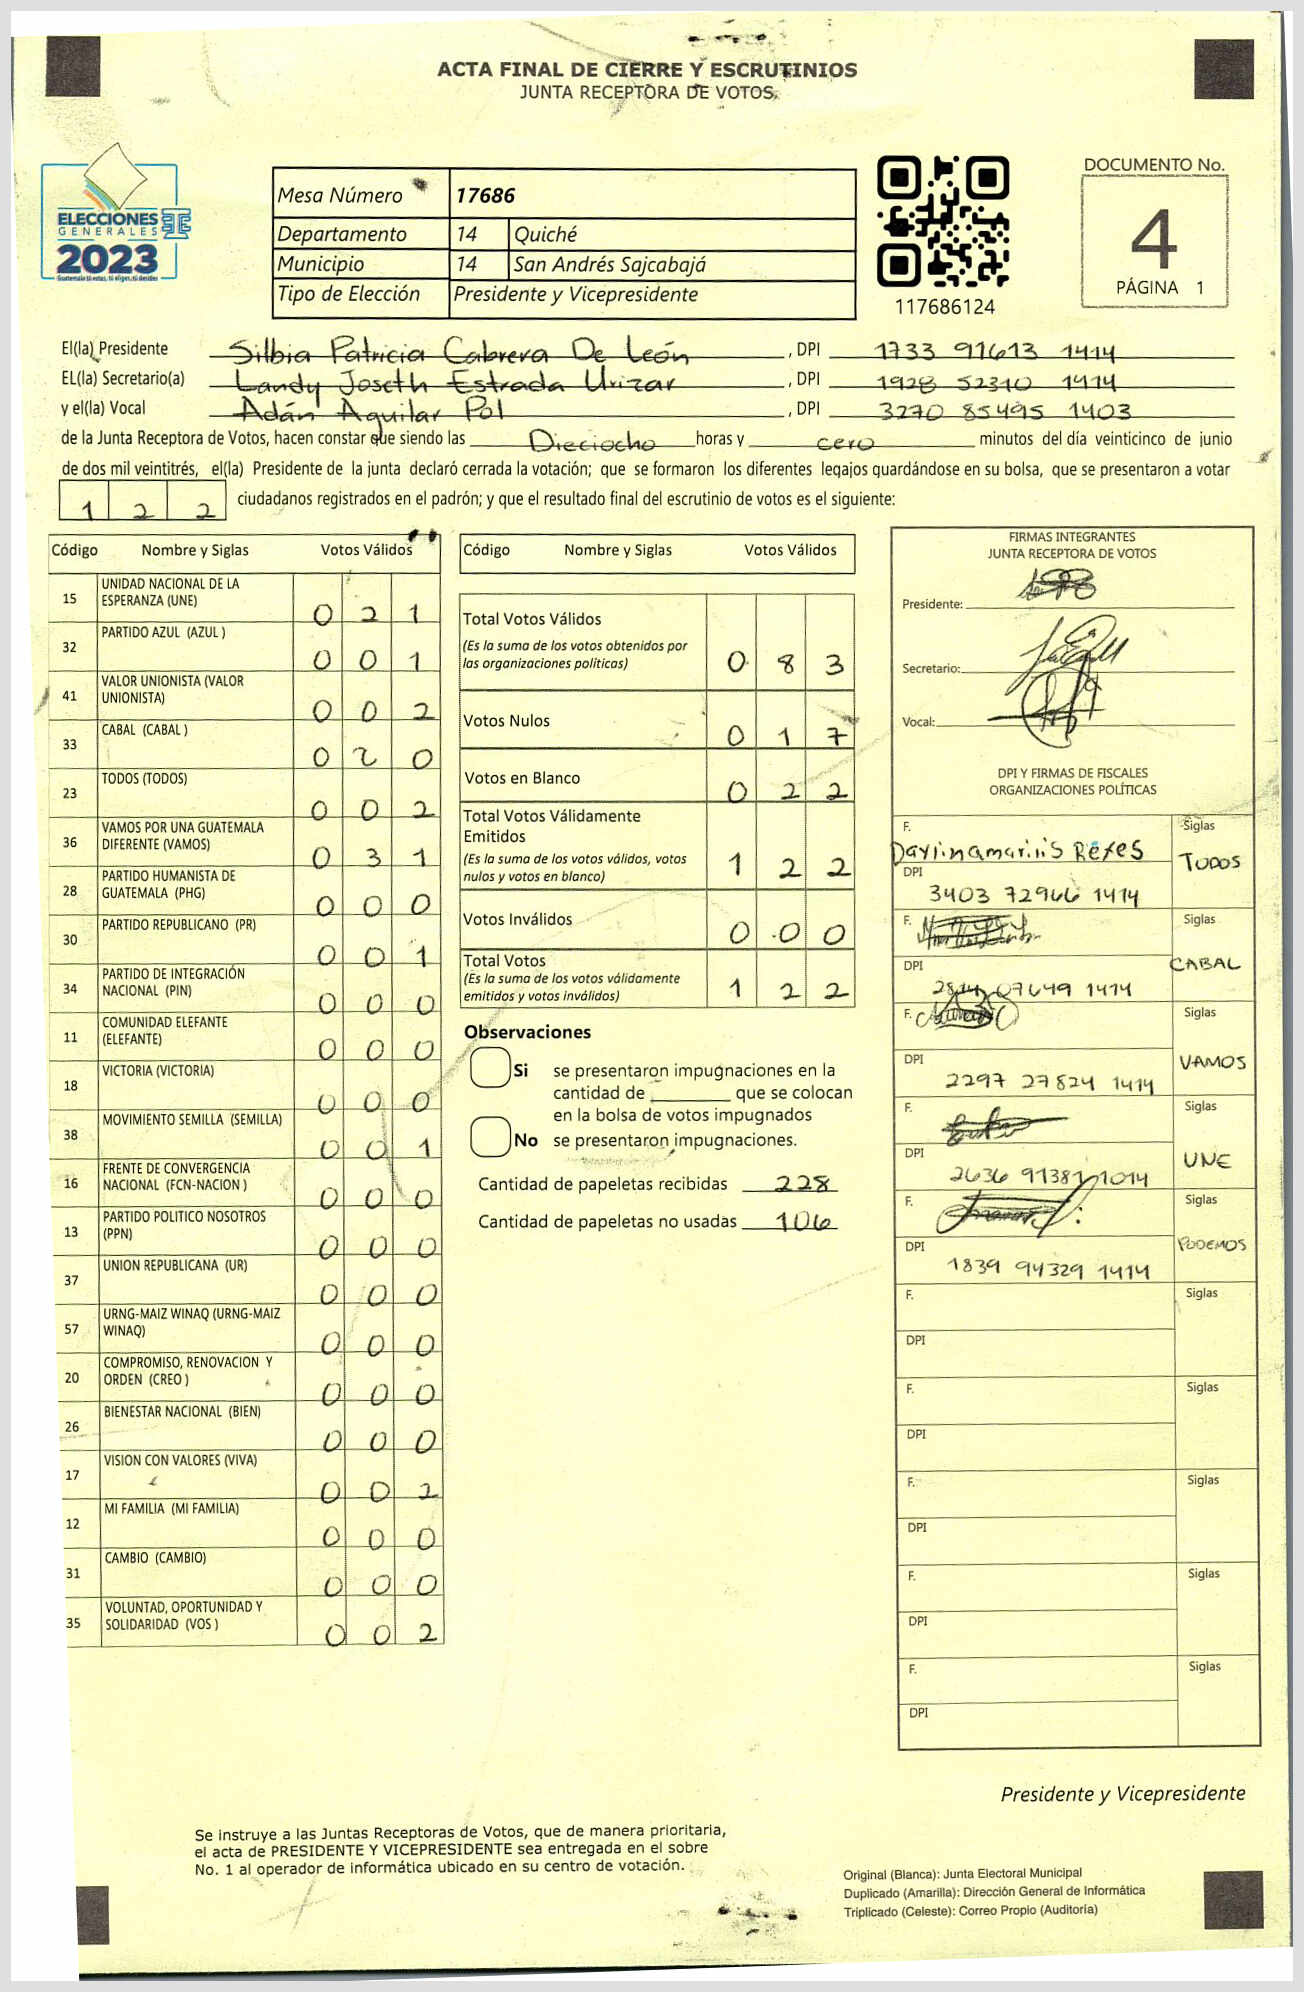 ACTA FINAL DE CIERRE Y ESCRUTINIOS
JUNTA RECEPTORA DE VOTOS
ELECCIONES
GENERALES
2023
Guatemala tú votas, tú eliges, tú decides
Mesa Número 17686
Departamento 14 Quiché
Municipio 14 San Andrés Sajcabajá
Tipo de Elección Presidente y Vicepresidente
117686124
DOCUMENTO No.
4
PÁGINA 1
El(la) Presidente Silbia Patricia Cabrera De León , DPI 1733 91613 1414
EL(la) Secretario(a) Landy Joseth Estrada Urizar , DPI 1928 52310 1414
y el(la) Vocal Adán Aguilar Pol , DPI 3270 85495 1403
de la Junta Receptora de Votos, hacen constar que siendo las Dieciocho horas y cero minutos del día veinticinco de junio
de dos mil veintitrés, el(la) Presidente de la junta declaró cerrada la votación; que se formaron los diferentes legajos guardándose en su bolsa, que se presentaron a votar
1 2 2 ciudadanos registrados en el padrón; y que el resultado final del escrutinio de votos es el siguiente:
Código Nombre y Siglas Votos Válidos
15 UNIDAD NACIONAL DE LA
ESPERANZA (UNE) 0 2 1
32 PARTIDO AZUL (AZUL ) 0 0 1
41 VALOR UNIONISTA (VALOR
UNIONISTA) 0 0 2
33 CABAL (CABAL ) 0 2 0
23 TODOS (TODOS) 0 0 2
36 VAMOS POR UNA GUATEMALA
DIFERENTE (VAMOS) 0 3 1
28 PARTIDO HUMANISTA DE
GUATEMALA (PHG) 0 0 0
30 PARTIDO REPUBLICANO (PR) 0 0 1
34 PARTIDO DE INTEGRACIÓN
NACIONAL (PIN) 0 0 0
11 COMUNIDAD ELEFANTE
(ELEFANTE) 0 0 0
18 VICTORIA (VICTORIA) 0 0 0
38 MOVIMIENTO SEMILLA (SEMILLA) 0 0 1
16 FRENTE DE CONVERGENCIA
NACIONAL (FCN-NACION ) 0 0 0
13 PARTIDO POLITICO NOSOTROS
(PPN) 0 0 0
37 UNION REPUBLICANA (UR) 0 0 0
57 URNG-MAIZ WINAQ (URNG-MAIZ
WINAQ) 0 0 0
20 COMPROMISO, RENOVACION Y
ORDEN (CREO ) 0 0 0
26 BIENESTAR NACIONAL (BIEN) 0 0 0
17 VISION CON VALORES (VIVA) 0 0 2
12 MI FAMILIA (MI FAMILIA) 0 0 0
31 CAMBIO (CAMBIO) 0 0 0
35 VOLUNTAD, OPORTUNIDAD Y
SOLIDARIDAD (VOS ) 0 0 2
Código Nombre y Siglas Votos Válidos
Total Votos Válidos
(Es la suma de los votos obtenidos por
las organizaciones políticas) 0 8 3
Votos Nulos 0 1 7
Votos en Blanco 0 2 2
Total Votos Válidamente
Emitidos
(Es la suma de los votos válidos, votos
nulos y votos en blanco) 1 2 2
Votos Inválidos 0 0 0
Total Votos
(Es la suma de los votos válidamente
emitidos y votos inválidos) 1 2 2
Observaciones
Si se presentaron impugnaciones en la
cantidad de ________ que se colocan
en la bolsa de votos impugnados
No se presentaron impugnaciones.
Cantidad de papeletas recibidas 228
Cantidad de papeletas no usadas 106
FIRMAS INTEGRANTES
JUNTA RECEPTORA DE VOTOS
Presidente:
Secretario:
Vocal:
DPI Y FIRMAS DE FISCALES
ORGANIZACIONES POLÍTICAS
F. Siglas
Daylinamarilis Reyes TODOS
DPI
3403 72966 1414
F. Siglas
DPI CABAL
2814 07649 1414
F. Siglas
DPI VAMOS
2297 27824 1414
F. Siglas
DPI UNE
2636 91381 1014
F. Siglas
DPI PODEMOS
1839 94329 1414
F. Siglas
DPI
F. Siglas
DPI
F. Siglas
DPI
F. Siglas
DPI
F. Siglas
DPI
Presidente y Vicepresidente
Se instruye a las Juntas Receptoras de Votos, que de manera prioritaria,
el acta de PRESIDENTE Y VICEPRESIDENTE sea entregada en el sobre
No. 1 al operador de informática ubicado en su centro de votación.
Original (Blanca): Junta Electoral Municipal
Duplicado (Amarilla): Dirección General de Informática
Triplicado (Celeste): Correo Propio (Auditoría)